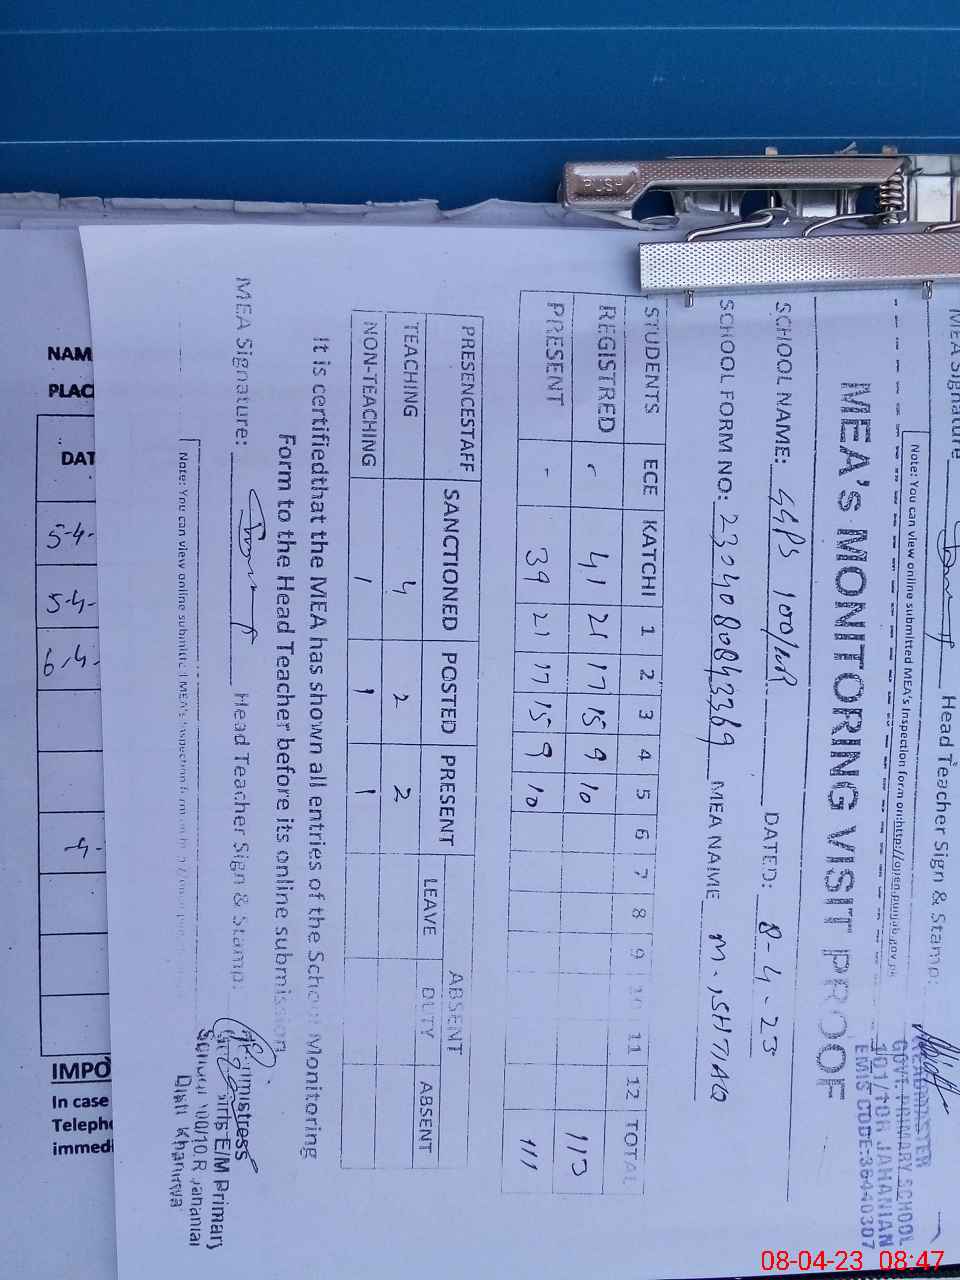 MEA Signature Head Teacher Sign & Stamp:
HEADMASTER
GOVT. PRIMARY SCHOOL
101/10R JAHANIAN
EMIS CODE:36440307
Note: You can view online submitted MEA's Inspection form on:http://open.punjab.gov.pk
MEA'S MONITORING VISIT PROOF
SCHOOL NAME: GGPS 100/10R DATED: 8-4-23
SCHOOL FORM NO: 2304080843369 MEA NAME M. ISHTIAQ
STUDENTS ECE KATCHI 1 2 3 4 5 6 7 8 9 10 11 12 TOTAL
REGISTRED - 41 21 17 15 9 10 113
PRESENT - 39 21 17 15 9 10 111
PRESENCESTAFF SANCTIONED POSTED PRESENT ABSENT
LEAVE DUTY ABSENT
TEACHING 4 2 2
NON-TEACHING 1 1 1
It is certifiedthat the MEA has shown all entries of the School Monitoring
Form to the Head Teacher before its online submission
MEA Signature: Head Teacher Sign & Stamp:
Girls E/M Primary
School 100/10.R Jahanian
Distt Khanewal
Note: You can view online submitted MEA's Inspection form on
NAM
PLAC
DAT
5-4-
5-4-
6-4-
-4-
IMPO
In case
Teleph
immedi
PUSH
08-04-23 08:47